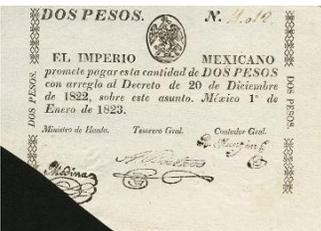 DOS PESOS. N.
EL IMPERIO MEXICANO
promete pagar esta cantidad de DOS PESOS
con arreglo al Decreto de 20 de Diciembre
de 1822, sobre este asunto. México 1º de
Enero de 1823.
Ministro de Hacda. Tesorero Gral. Contador Gral.
Medina
DOS PESOS.
DOS PESOS.